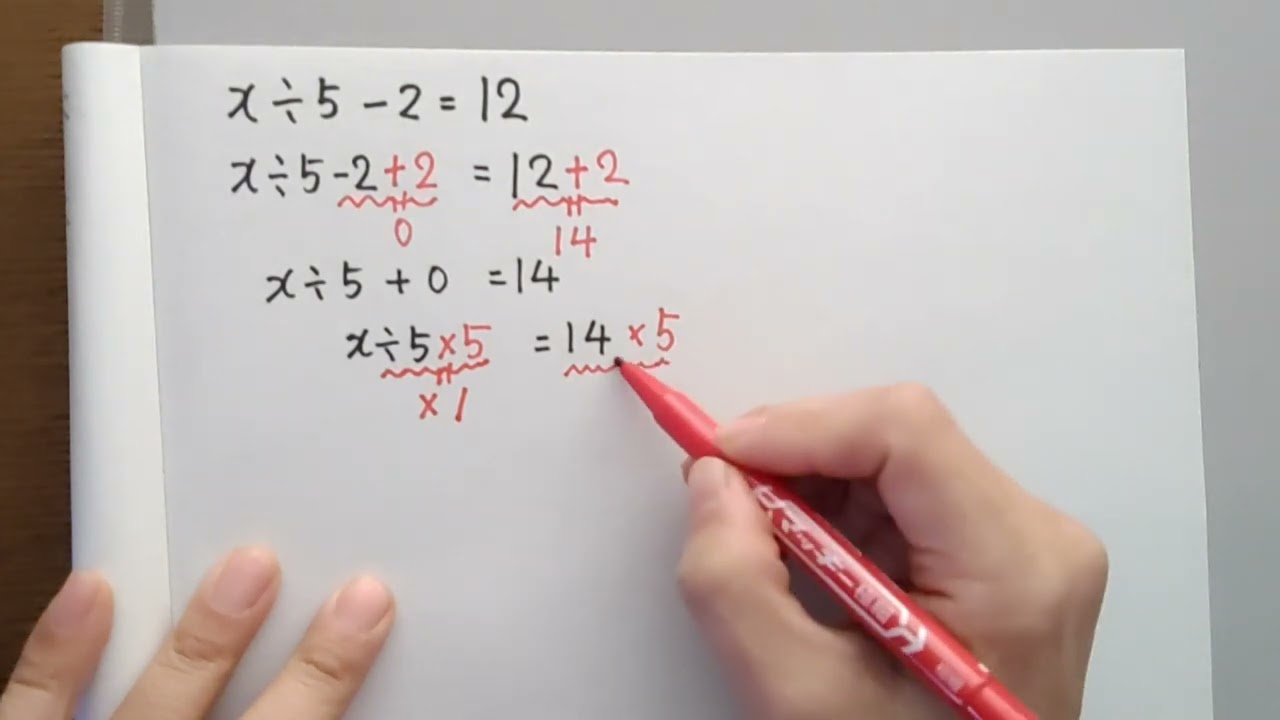 x÷5-2=12
x÷5-2+2=12+2
0 14
x÷5+0=14
x÷5×5=14×5
×1
マッキー極細